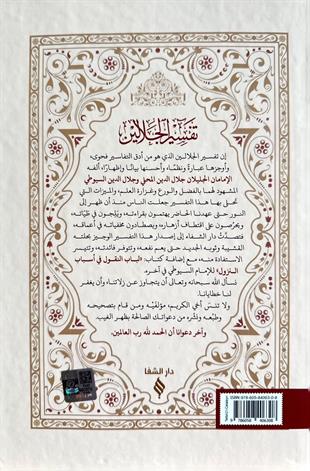 تفسير الجلالين
إن تفسير الجلالين الذي هو من أدق التفاسير فحوى،
وأوجزها عبارة ونظمًا، وأحسنها بيانًا وإظهارًا، ألفه
الإمامان الجليلان جلال الدين المحلي وجلال الدين السيوطي
المشهود لهما بالفضل والورع وغزارة العلم، والميزات التي
تحلى بها هذا التفسير جعلت الناس منذ أن ظهر إلى
النور حتى عهدنا الحاضر يهتمون بقراءته، ويلجون في طياته،
ويحرصون على اقتطاف أزهاره، ويصطادون مخفياته في أعماقه،
فتصدت دار الشفاء إلى إصدار هذا التفسير الوجيز بحلته
القشيبة وثوبه الجديد حتى يعم نفعه، وتتوفر فائدته، وتتيسر
الاستفادة منه، مع إضافة كتاب: «لباب النقول في أسباب
النزول» للإمام السيوطي في آخره.
نسأل الله سبحانه وتعالى أن يتجاوز عن زلاتنا، وأن يغفر
لنا خطايانا.
ولا تنس أخي الكريم، مؤلفيه ومن قام بتصحيحه
وطبعه ونشره من دعواتك الصالحة بظهر الغيب.
وآخر دعوانا أن الحمد لله رب العالمين.
دار الشفا